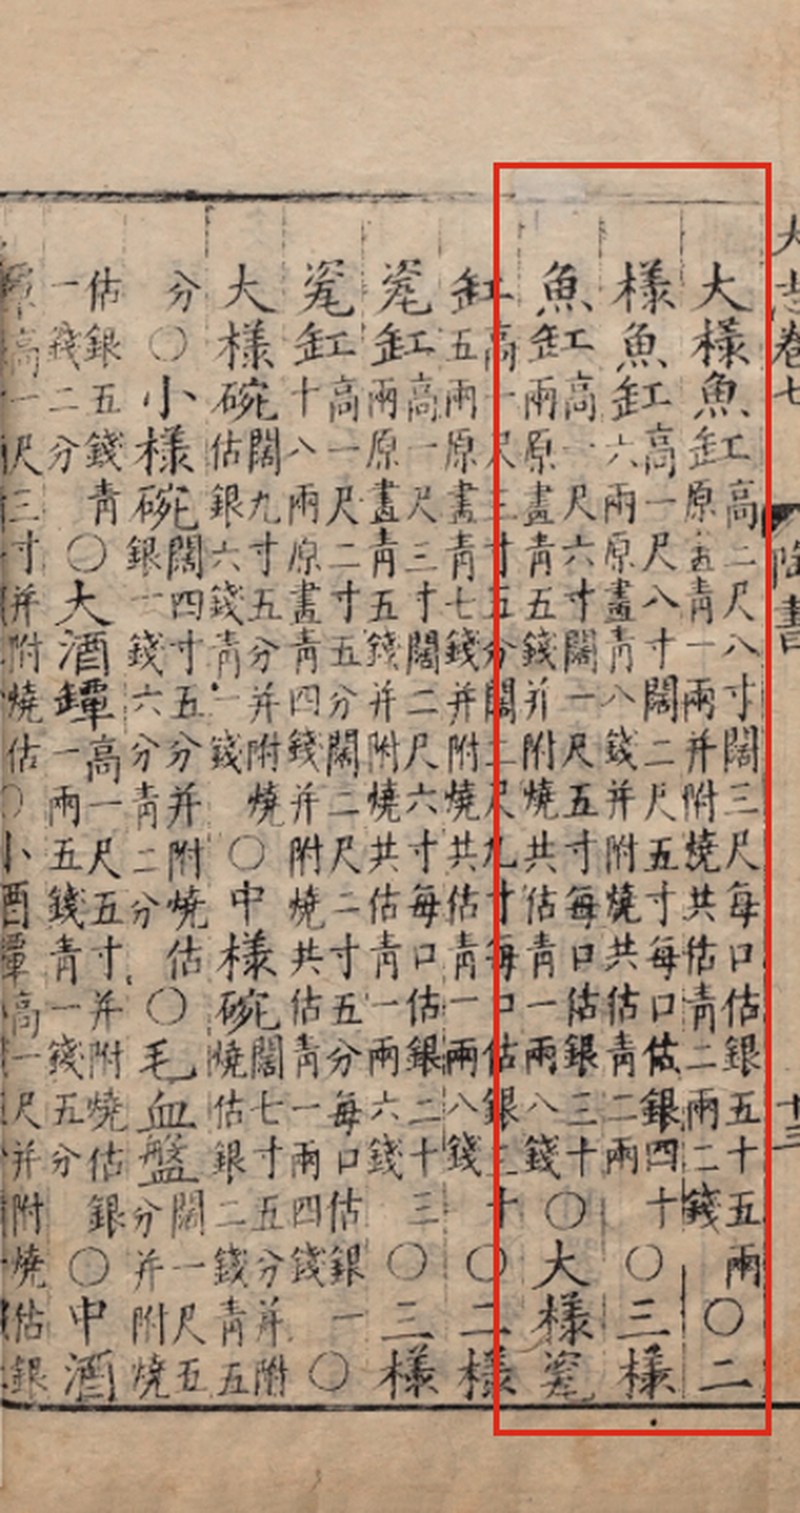 大志卷七 陶書 十三
大樣魚缸高二尺八寸闊三尺每口估銀五十五兩原畫青一兩并附燒共估青二兩二錢〇二
樣魚缸高一尺八寸闊二尺五寸每口估銀四十六兩原畫青八錢并附燒共估青二兩〇三樣
魚缸高一尺六寸闊一尺五寸每口估銀三十兩原畫青五錢并附燒共估青一兩八錢〇大樣瓷
缸高一尺三寸五分闊二尺九寸每口估銀三十五兩原畫青七錢并附燒共估青一兩八錢〇二樣
瓷缸高一尺三寸闊二尺六寸每口估銀二十三兩原畫青五錢并附燒共估青一兩六錢〇三樣
瓷缸高一尺二寸五分闊二尺二寸五分每口估銀一十八兩原畫青四錢并附燒共估青一兩四錢〇
大樣碗闊九寸五分并附燒估銀六錢青一錢〇中樣碗闊七寸五分并附燒估銀二錢青五
分〇小樣碗闊四寸五分并附燒估銀一錢六分青二分〇毛血盤闊一尺五分并附燒
估銀五錢青一錢二分〇大酒罈高一尺五寸并附燒估銀一兩五錢青一錢五分〇中酒
罈高一尺三寸并附燒估〇小酒罈高一尺并附燒估銀